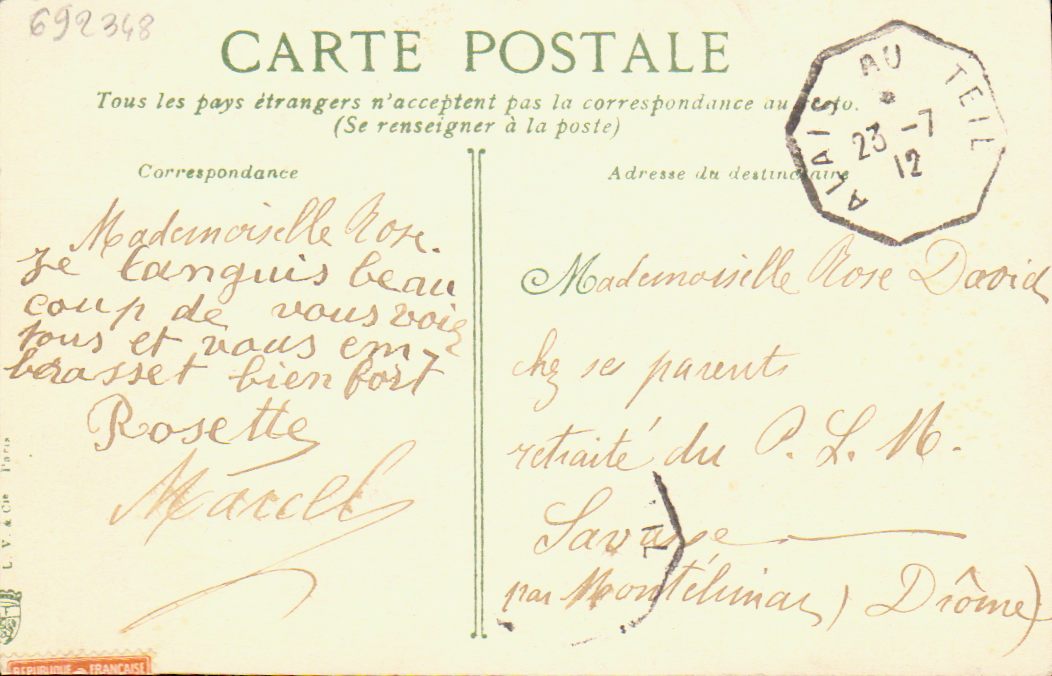 692348
CARTE POSTALE
Tous les pays étrangers n'acceptent pas la correspondance au recto.
(Se renseigner à la poste)
ALAIS AU TEIL
23 -7
12
Correspondance
Mademoiselle Rose.
Je languis beau
coup de vous voir
tous et vous em-
brasset bien fort
Rosette
Marcel
Adresse du destinataire
Mademoiselle Rose David
chez ses parents
retraité du P. L. M.
Savasse
par Montélimar (Drôme)
L. V. & Cie Paris
REPUBLIQUE FRANÇAISE